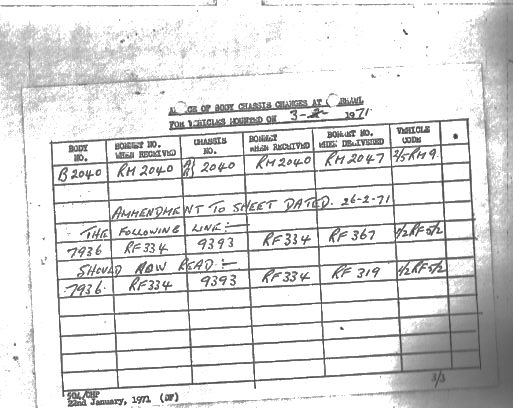 OF BODY CHASSIS CHANGES AT
FOR VEHICLES MOUNTED ON 3-2- 1971
BODY NO. BONNET NO. WHEN RECEIVED CHASSIS NO. BONNET WHEN RECEIVED BONNET NO. WHEN DELIVERED VEHICLE CODE *
B2040 RM2040 2040 RM2040 RM2047 2/5RM9
AMMENDMENT TO SHEET DATED. 26-2-71
THE FOLLOWING LINE:-
7936 RF334 9393 RF334 RF367 1/2RF5/2
SHOULD NOW READ:-
7936 RF334 9393 RF334 RF319 1/2RF5/2
3/3
22nd January, 1971 (DF)